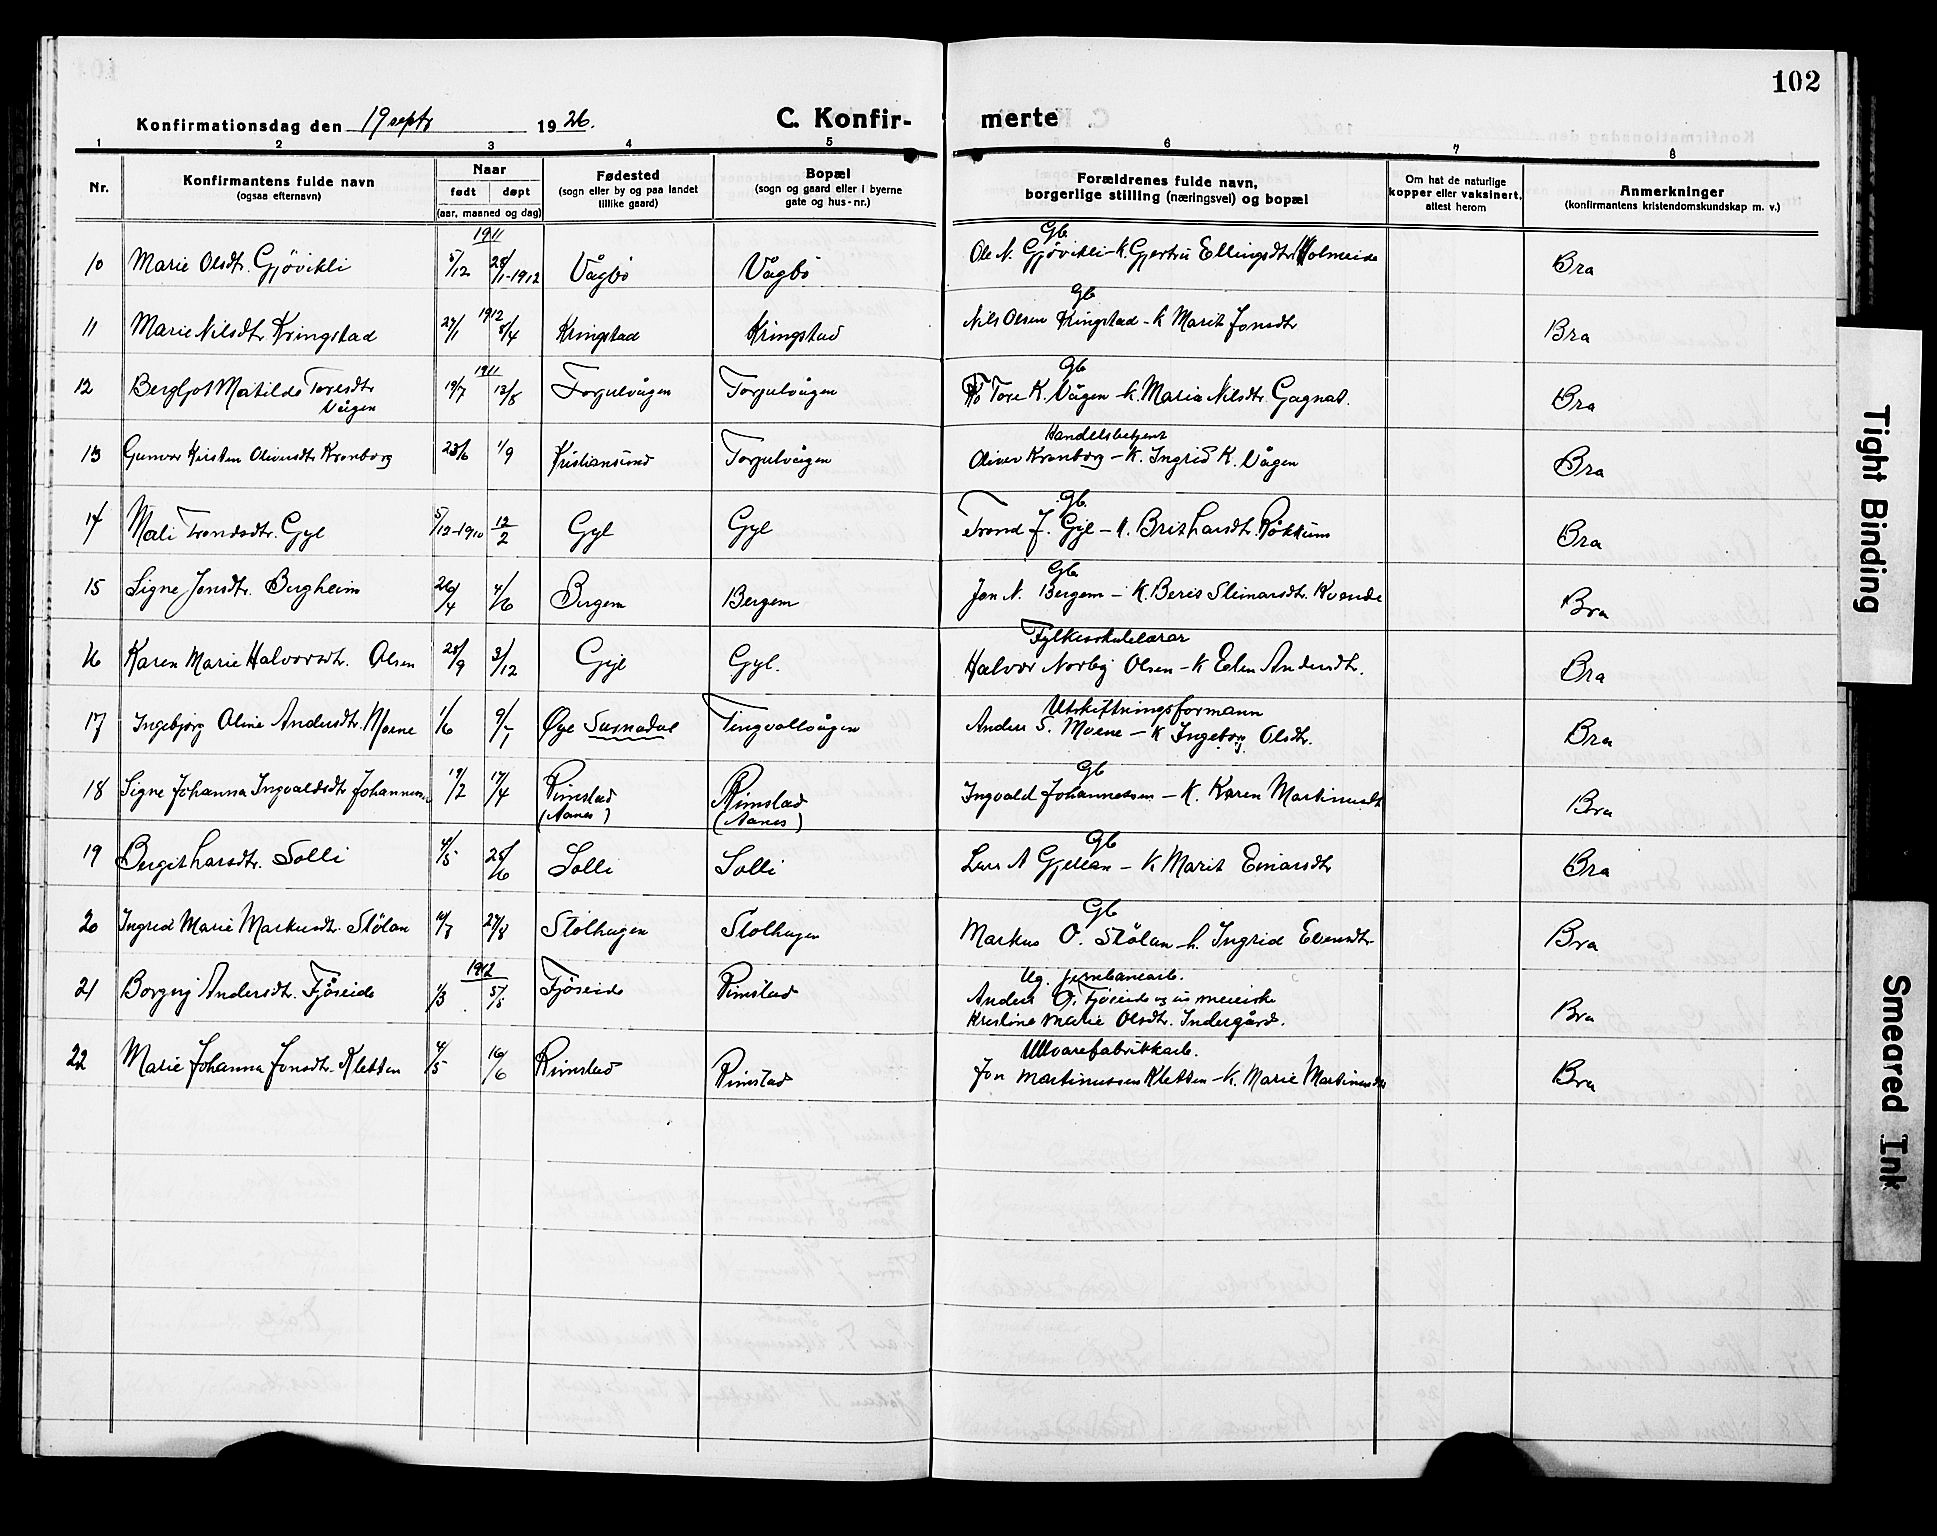 102
Konfirmationsdag den 19 septr 1926.
C. Konfir- merte
1 2 3 4 5 6 7 8
Nr.
Konfirmantens fulde navn
(ogsaa efternavn)
Naar
født døpt
(aar, maaned og dag)
Fødested
(sogn eller by og paa landet
tillike gaard)
Bopæl
(sogn og gaard eller i byerne
gate og hus-nr.)
Forældrenes fulde navn,
borgerlige stilling (næringsvei) og bopæl
Om hat de naturlige
kopper eller vaksinert,
attest herom
Anmerkninger
(konfirmantens kristendomskundskap m. v.)
1911 Gb.
10 Marie Olsdtr. Gjøvikli 5/12 28/1-1912 Vågbø Vågbø Ole N. Gjøvikli - K. Gjertru Ellingsdtr. Holmeide Bra
1912 Gb
11 Marie Nilsdtr Kringstad 27/1 8/4 Kringstad Kringstad Nils Olsen Kringstad - K Marit Jonsdtr Bra
1911 Gb
12 Bergljot Matilde Toresdtr 19/7 13/8 Torjulvågen Torjulvågen Tore K. Vågen - K. Maria Nilsdtr. Gagnat. Bra
Vågen
Handelsbetjent
13 Gunvor Kirsten Oliversdtr Kronborg 23/6 1/9 Kristiansund Torjulvågen Oliver Kronborg - K. Ingrid K. Vågen Bra
Gb.
14 Mali Trondsdtr. Gyl 5/12-1910 12/2 Gyl Gyl Trond J. Gyl - K. Brit Larsdtr. Røkkum Bra
Gb
15 Signe Jonsdtr. Bergheim 26/4 4/6 Bergem Bergem Jon N. Bergem - K. Beret Steinarsdtr. Kvende Bra
Fylkesskulelærar
16 Karen Marie Halvorsdtr. Olsen 28/9 3/12 Gyl Gyl. Halvor Norby Olsen - K Elen Andersdtr. Bra
Utskiftningsformann
17 Ingebjørg Oline Andersdtr. Moene 1/6 9/7 Øye Surnadal Tingvollvågen Anders S. Moene - K Ingeborg Olsdtr. Bra
Gb
18 Signe Johanna Ingvaldsdtr Johannesen 19/2 17/4 Rimstad Rimstad Ingvald Johannessen - K. Karen Martinusdtr Bra
(Aanes) (Aanes)
Gb
19 Bergit Larsdtr. Solli 4/5 25/6 Solli Solli Lars A Gjellan - K Marit Einarsdtr Bra
Gb
20 Ingrid Marie Markusdtr. Stølan 10/7 27/8 Stolhugen Stolhugen Markus O. Stølan - k. Ingrid Evensdtr Bra
1912 Ug. jernbanearb.
21 Borgny Andersdtr. Fjøseide 1/3 5/5 Fjøseide Rimstad Anders O. Fjøseide og ug meieriske Bra
Kristine Marie Olsdtr. Indergård.
Ullvarefabrikkarb.
22 Marie Johanna Jonsdtr. Kletten 4/5 16/6 Rimstad Rimstad Jon Martinussen Kletten - K. Marie Martinusdtr Bra
Tight Binding
Smeared Ink